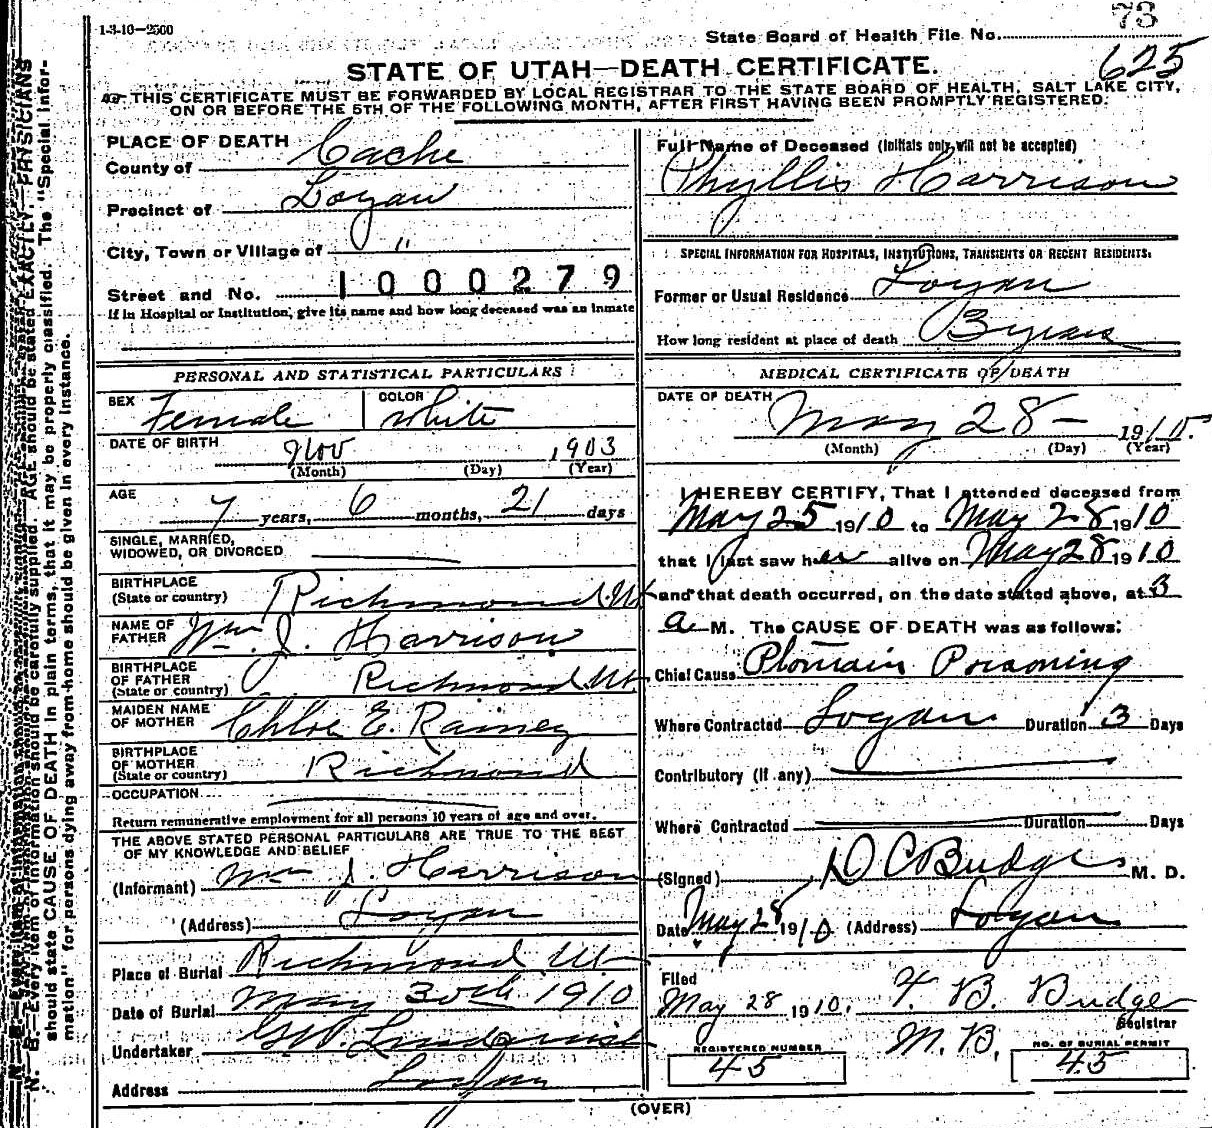 1-3-10—2500
73
State Board of Health File No.
625
STATE OF UTAH—DEATH CERTIFICATE.
THIS CERTIFICATE MUST BE FORWARDED BY LOCAL REGISTRAR TO THE STATE BOARD OF HEALTH, SALT LAKE CITY,
ON OR BEFORE THE 5TH OF THE FOLLOWING MONTH, AFTER FIRST HAVING BEEN PROMPTLY REGISTERED.
PLACE OF DEATH
County of Cache
Precinct of Logan
City, Town or Village of "
Street and No. 1000279
If in Hospital or Institution, give its name and how long deceased was an inmate
PERSONAL AND STATISTICAL PARTICULARS
SEX Female COLOR White
DATE OF BIRTH Nov 1903
(Month) (Day) (Year)
AGE 7 years, 6 months, 21 days
SINGLE, MARRIED,
WIDOWED, OR DIVORCED
BIRTHPLACE
(State or country) Richmond Ut
NAME OF
FATHER Wm. J. Harrison
BIRTHPLACE
OF FATHER
(State or country) Richmond Ut.
MAIDEN NAME
OF MOTHER Chloe E. Rainey
BIRTHPLACE
OF MOTHER
(State or country) Richmond
OCCUPATION
Return remunerative employment for all persons 10 years of age and over.
THE ABOVE STATED PERSONAL PARTICULARS ARE TRUE TO THE BEST
OF MY KNOWLEDGE AND BELIEF
(Informant) Wm J. Harrison
(Address) Logan
Place of Burial Richmond Ut
Date of Burial May 30th 1910
Undertaker Lindquist
Address Logan
Full Name of Deceased (Initials only will not be accepted)
Phyllis Harrison
SPECIAL INFORMATION FOR HOSPITALS, INSTITUTIONS, TRANSIENTS OR RECENT RESIDENTS.
Former or Usual Residence Logan
How long resident at place of death 3 years
MEDICAL CERTIFICATE OF DEATH
DATE OF DEATH
May 28 — 1910.
(Month) (Day) (Year)
I HEREBY CERTIFY, That I attended deceased from
May 25 1910 to May 28 1910
that I last saw her alive on May 28 1910
and that death occurred, on the date stated above, at 3
a M. The CAUSE OF DEATH was as follows:
Chief Cause Ptomain Poisoning
Where Contracted Logan Duration 3 Days
Contributory (if any)
Where Contracted Duration Days
(Signed) D C Budge M. D.
Date May 28 1910 (Address) Logan
Filed
May 28 1910. T. B. Budge
Registrar
M. B.
REGISTERED NUMBER
45
NO. OF BURIAL PERMIT
45
(OVER)
N. B.—Every item of information should be carefully supplied. AGE should be stated EXACTLY. PHYSICIANS
should state CAUSE OF DEATH in plain terms, that it may be properly classified. The "Special Infor-
mation" for persons dying away from home should be given in every instance.